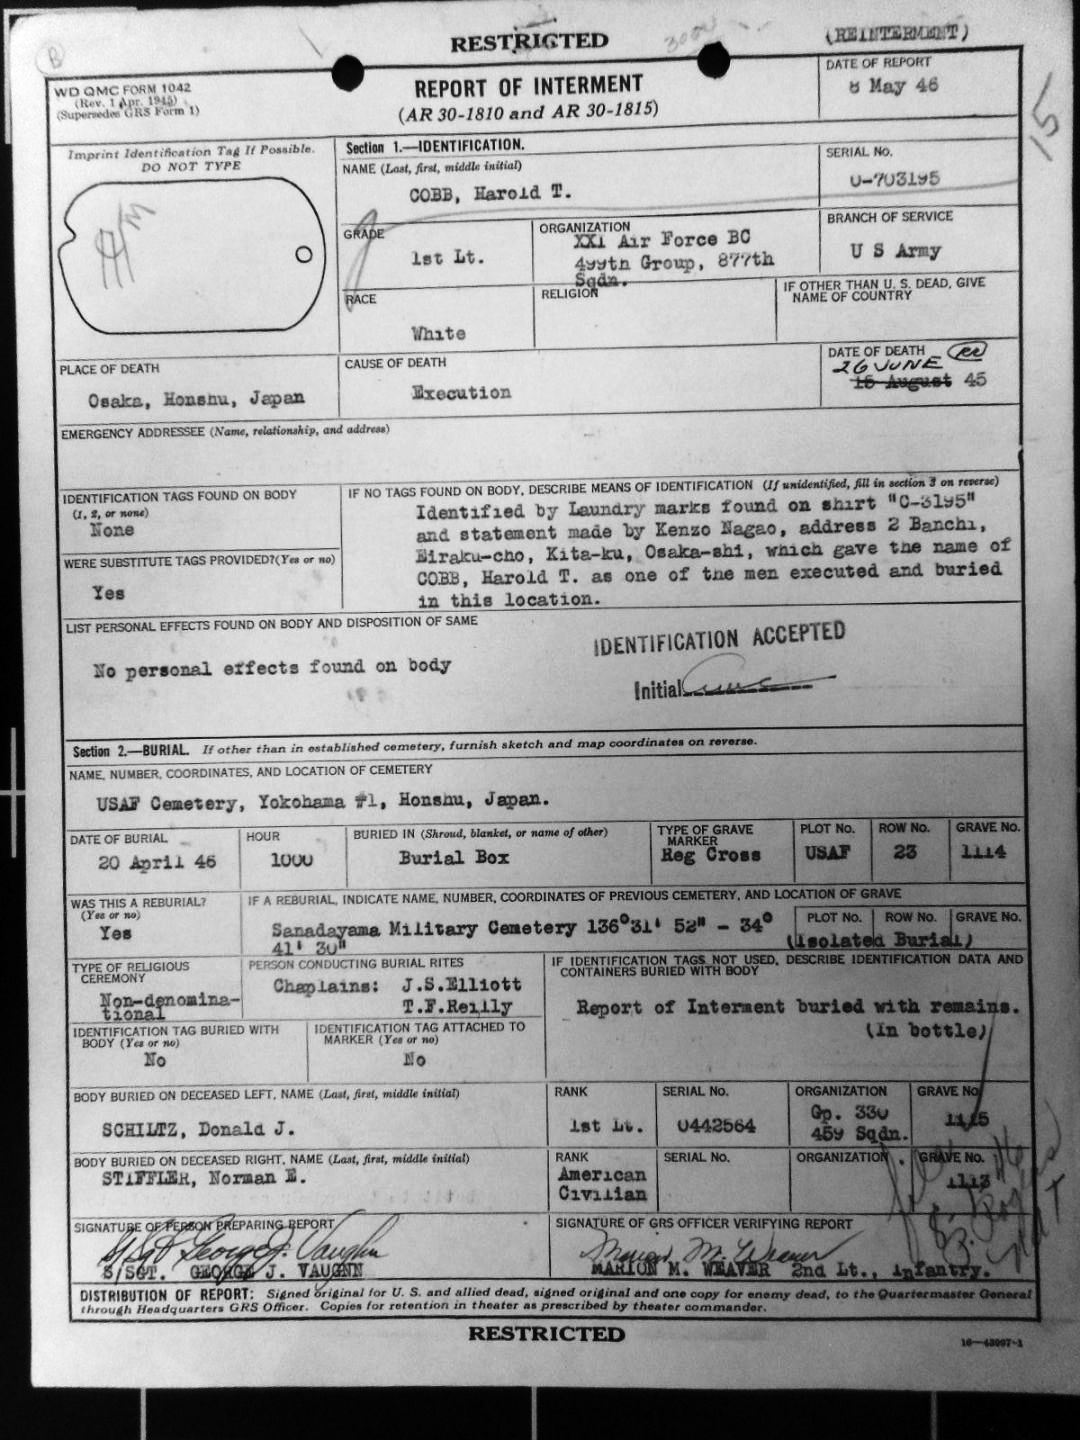 RESTRICTED
(REINTERMENT)
WD QMC FORM 1042
(Rev. 1 Apr. 1945)
(Supersedes GRS Form 1)
REPORT OF INTERMENT
(AR 30-1810 and AR 30-1815)
DATE OF REPORT
8 May 46
15
Imprint Identification Tag If Possible.
DO NOT TYPE
Section 1.—IDENTIFICATION.
NAME (Last, first, middle initial)
COBB, Harold T.
SERIAL No.
O-703195
GRADE
1st Lt.
ORGANIZATION
XXI Air Force BC
499th Group, 877th
Sqdn.
BRANCH OF SERVICE
U S Army
RACE
White
RELIGION
IF OTHER THAN U. S. DEAD, GIVE
NAME OF COUNTRY
PLACE OF DEATH
Osaka, Honshu, Japan
CAUSE OF DEATH
Execution
DATE OF DEATH
26 JUNE
15 August 45
EMERGENCY ADDRESSEE (Name, relationship, and address)
IDENTIFICATION TAGS FOUND ON BODY
(1, 2, or none)
None
WERE SUBSTITUTE TAGS PROVIDED? (Yes or no)
Yes
IF NO TAGS FOUND ON BODY, DESCRIBE MEANS OF IDENTIFICATION (If unidentified, fill in section 3 on reverse)
Identified by Laundry marks found on shirt "C-3195"
and statement made by Kenzo Nagao, address 2 Banchi,
Eiraku-cho, Kita-ku, Osaka-shi, which gave the name of
COBB, Harold T. as one of the men executed and buried
in this location.
LIST PERSONAL EFFECTS FOUND ON BODY AND DISPOSITION OF SAME
No personal effects found on body
IDENTIFICATION ACCEPTED
Initial
Section 2.—BURIAL. If other than in established cemetery, furnish sketch and map coordinates on reverse.
NAME, NUMBER, COORDINATES, AND LOCATION OF CEMETERY
USAF Cemetery, Yokohama #1, Honshu, Japan.
DATE OF BURIAL
20 April 46
HOUR
1000
BURIED IN (Shroud, blanket, or name of other)
Burial Box
TYPE OF GRAVE
MARKER
Reg Cross
PLOT No.
USAF
ROW No.
23
GRAVE No.
1114
WAS THIS A REBURIAL?
(Yes or no)
Yes
IF A REBURIAL, INDICATE NAME, NUMBER, COORDINATES OF PREVIOUS CEMETERY, AND LOCATION OF GRAVE
Sanadayama Military Cemetery 136°31' 52" - 34°
41' 30"
PLOT No. ROW No. GRAVE No.
(Isolated Burial)
TYPE OF RELIGIOUS
CEREMONY
Non-denomina-
tional
PERSON CONDUCTING BURIAL RITES
Chaplains: J.S.Elliott
T.F.Reilly
IF IDENTIFICATION TAGS NOT USED, DESCRIBE IDENTIFICATION DATA AND
CONTAINERS BURIED WITH BODY
Report of Interment buried with remains.
(In bottle)
IDENTIFICATION TAG BURIED WITH
BODY (Yes or no)
No
IDENTIFICATION TAG ATTACHED TO
MARKER (Yes or no)
No
BODY BURIED ON DECEASED LEFT, NAME (Last, first, middle initial)
SCHILTZ, Donald J.
RANK
1st Lt.
SERIAL No.
0442564
ORGANIZATION
Gp. 330
459 Sqdn.
GRAVE No.
1115
BODY BURIED ON DECEASED RIGHT, NAME (Last, first, middle initial)
STIFFLER, Norman E.
RANK
American
Civilian
SERIAL No.
ORGANIZATION
GRAVE No.
1113
SIGNATURE OF PERSON PREPARING REPORT
S/Sgt George J. Vaughn
S/SGT. GEORGE J. VAUGHN
SIGNATURE OF GRS OFFICER VERIFYING REPORT
Marion M. Weaver
MARION M. WEAVER 2nd Lt., Infantry.
DISTRIBUTION OF REPORT: Signed original for U. S. and allied dead, signed original and one copy for enemy dead, to the Quartermaster General
through Headquarters GRS Officer. Copies for retention in theater as prescribed by theater commander.
RESTRICTED
16—43997-1